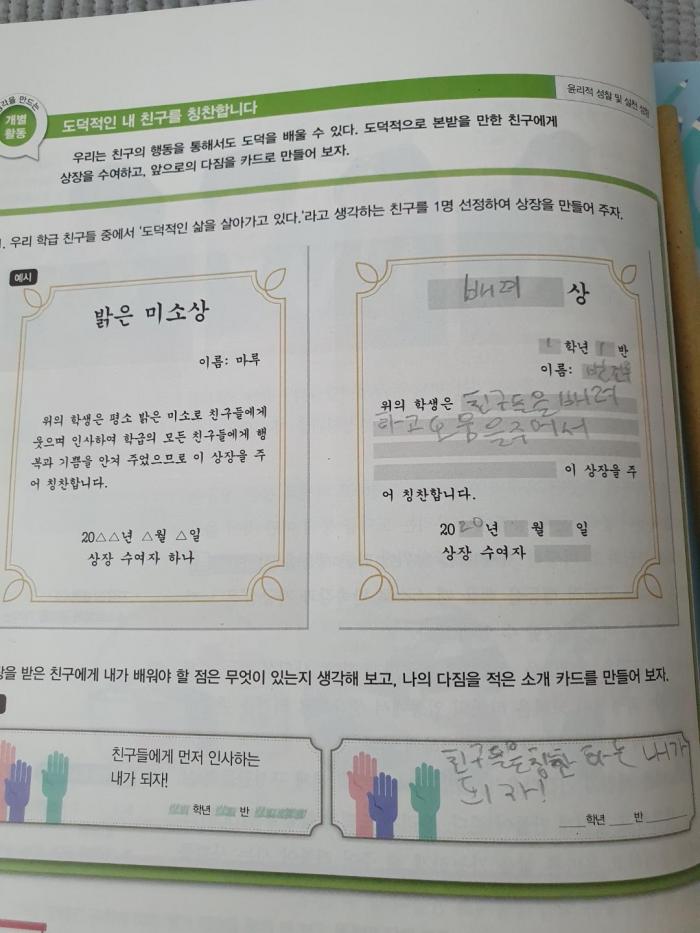 생각을 만드는
개별
활동
도덕적인 내 친구를 칭찬합니다
윤리적 성찰 및 실천 성향
우리는 친구의 행동을 통해서도 도덕을 배울 수 있다. 도덕적으로 본받을 만한 친구에게
상장을 수여하고, 앞으로의 다짐을 카드로 만들어 보자.
1. 우리 학급 친구들 중에서 ‘도덕적인 삶을 살아가고 있다.’라고 생각하는 친구를 1명 선정하여 상장을 만들어 주자.
예시
밝은 미소상
이름: 마루
위의 학생은 평소 밝은 미소로 친구들에게
웃으며 인사하여 학급의 모든 친구들에게 행
복과 기쁨을 안겨 주었으므로 이 상장을 주
어 칭찬합니다.
20△△년 △월 △일
상장 수여자 하나
배려 상
1 학년 1 반
이름:
위의 학생은 친구들을 배려
하고 도움을주어서
이 상장을 주
어 칭찬합니다.
2020년 월 일
상장 수여자
장을 받은 친구에게 내가 배워야 할 점은 무엇이 있는지 생각해 보고, 나의 다짐을 적은 소개 카드를 만들어 보자.
친구들에게 먼저 인사하는
내가 되자!
학년 반
친구들을 칭찬 하는 내가
되자!
학년 반